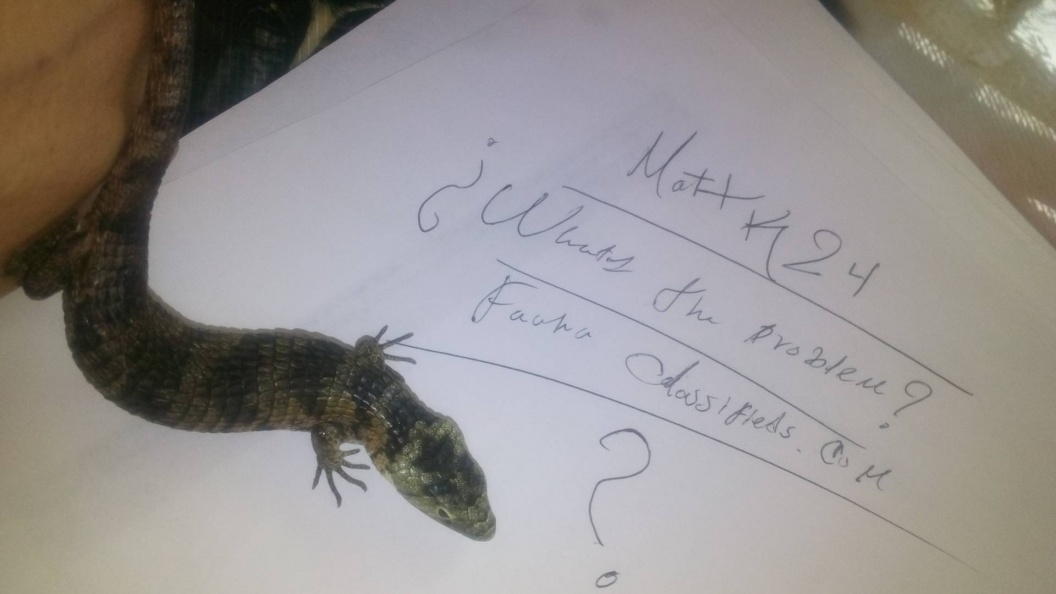 Matt K24
¿ Whats the problem?
Fauna Classifieds. Com
?